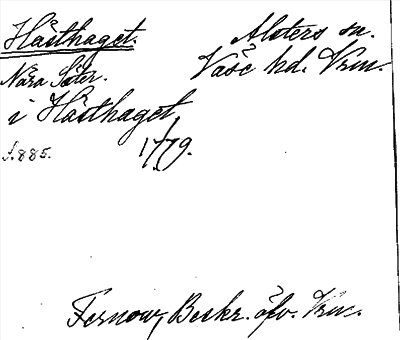 Hästhaget.
Alsters sn.
Väse hd. Vrm.
Nära Säter.
i Hästhaget
s. 885.
1779.
Fernow, Beskr. öfv. Vrm.